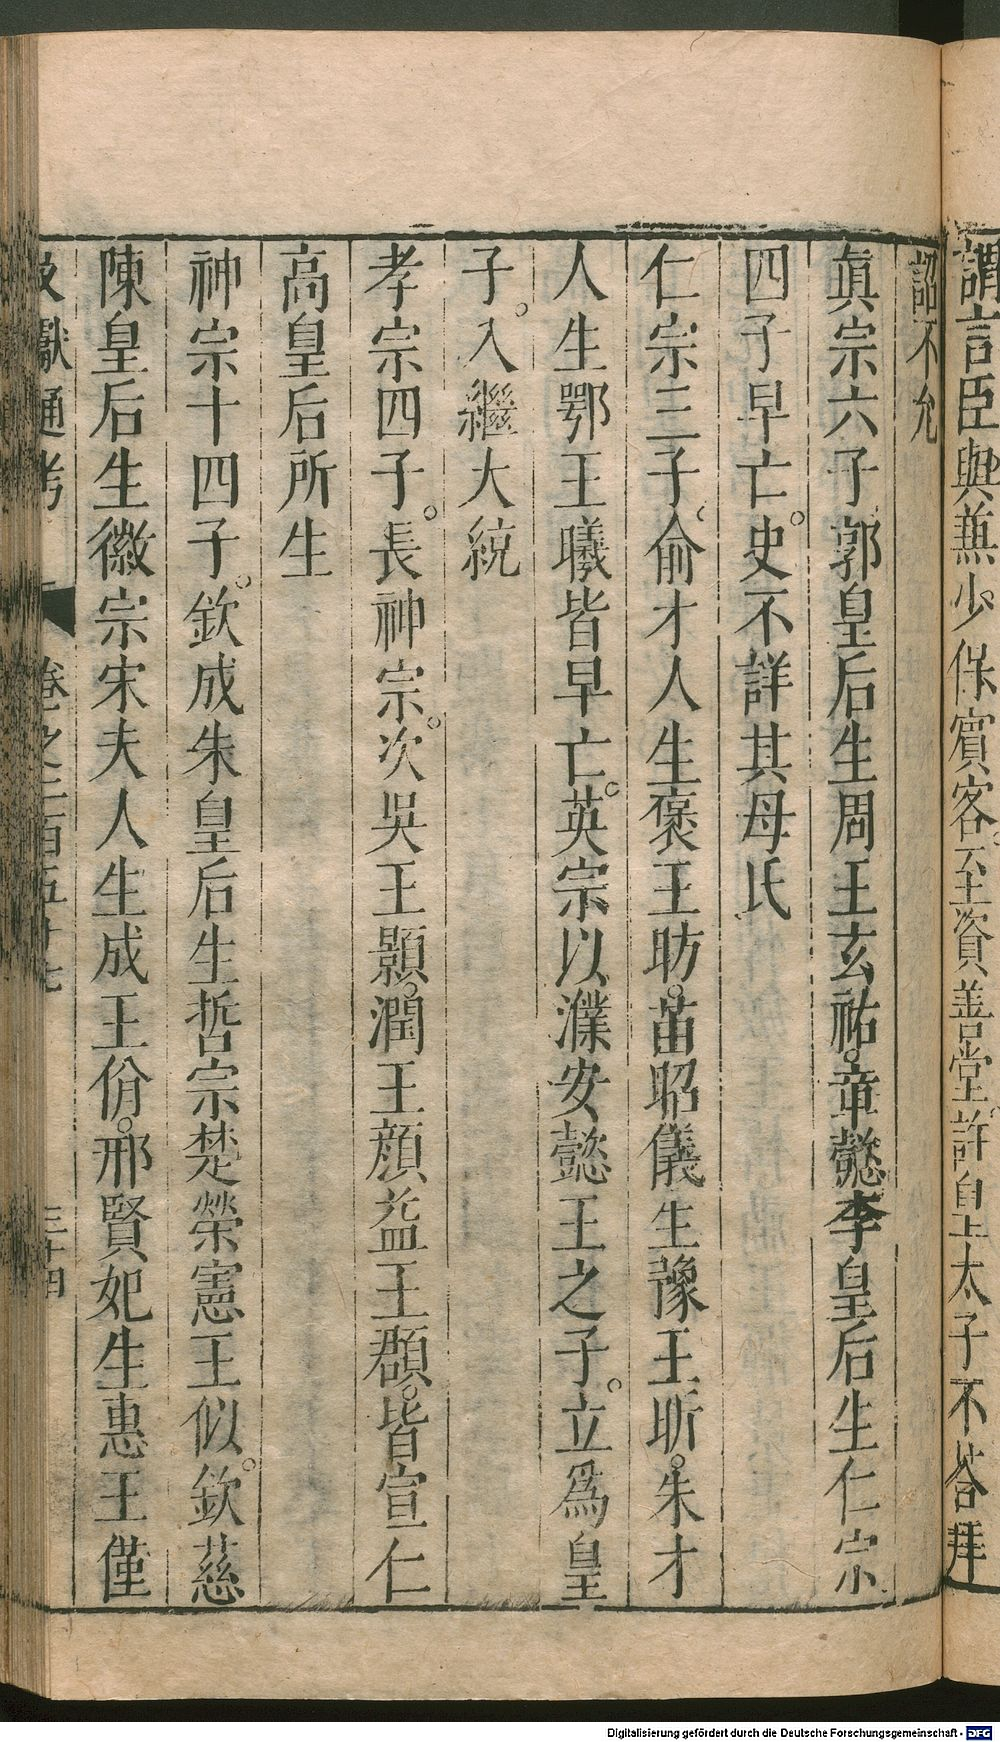 謂言臣與蕪少保賓客至資善堂許皇太子不答拜
詔不允
眞宗六子郭皇后生周王玄祐章懿李皇后生仁宗
四子早亡史不詳其母氏
仁宗三子俞才人生褒王昉苗昭儀生豫王昕朱才
人生鄂王曦皆早亡英宗以濮安懿王之子立爲皇
子入繼大統
孝宗四子長神宗次吳王顥潤王顔益王頵皆宣仁
高皇后所生
神宗十四子欽成朱皇后生哲宗楚榮憲王似欽慈
陳皇后生徽宗宋夫人生成王佾邢賢妃生惠王僅
獻通考 卷之二百五十七 三十四
Digitalisierung gefördert durch die Deutsche Forschungsgemeinschaft - DFG